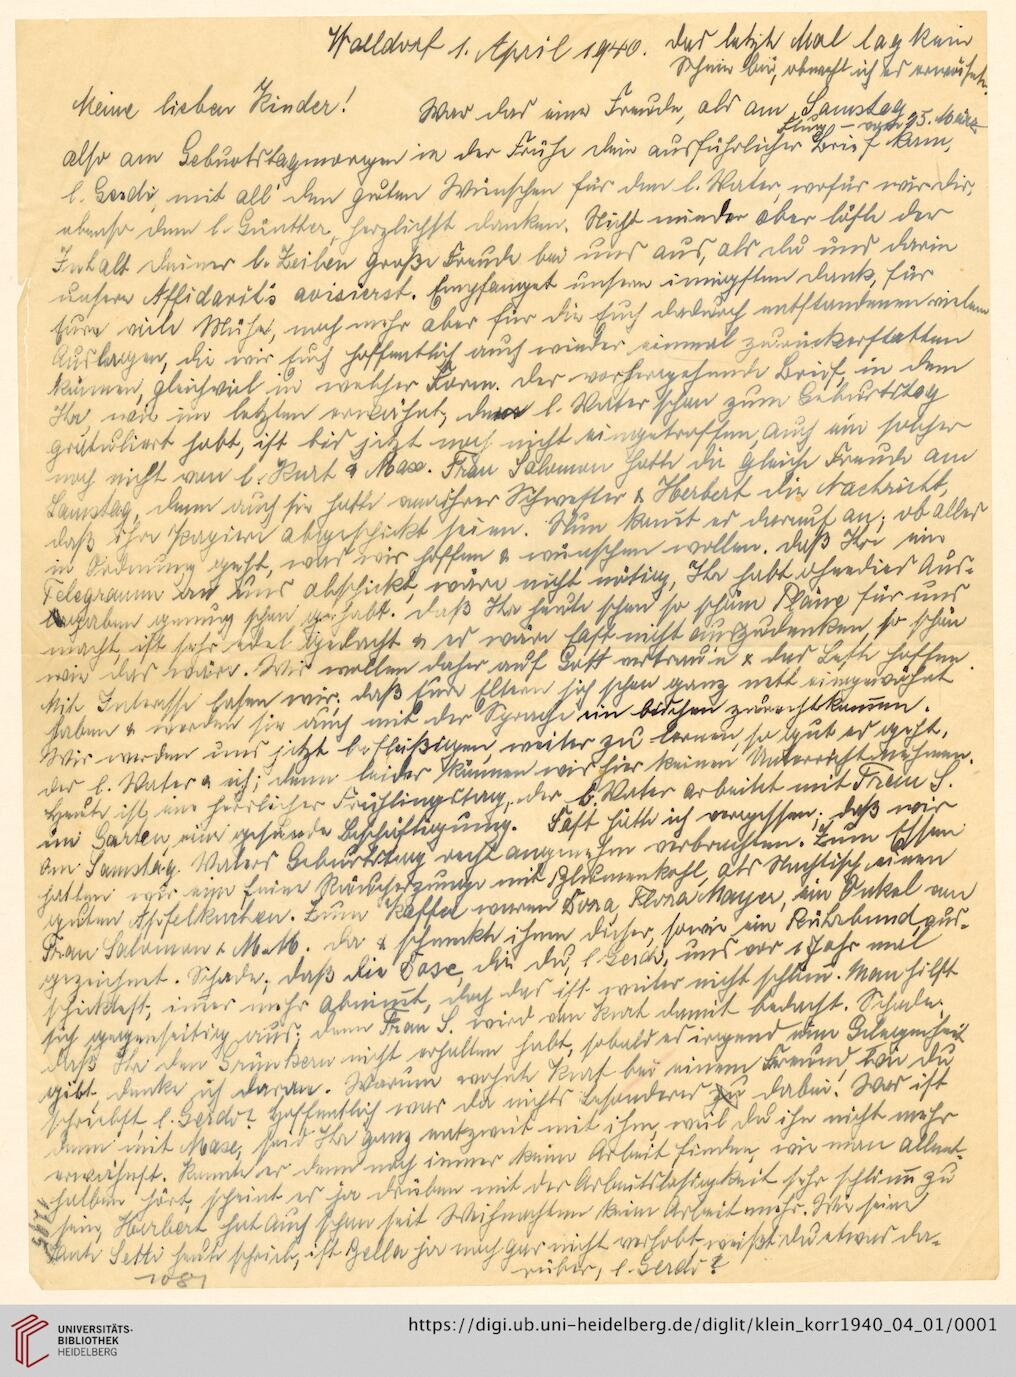 Walldorf 1. April 1940.
Das letzte Mal lag kein
Schein bei, obwohl ich es erwähnte.
Meine lieben Kinder!
War das eine Freude, als am Samstag
Flug – vom 15. März
also am Geburtstagmorgen in der Frühe dein ausführlicher Brief kam,
l. Gerdi, mit all' den guten Wünschen für den l. Vater, wofür wir dir,
ebenso dem l. Günther, herzlichst danken. Nicht minder aber löste der
Inhalt deiner l. Zeilen große Freude bei uns aus, als du uns darin
unsere Affidavit's avisierst. Empfanget unsern innigsten Dank, für
Eure viele Mühe, noch mehr aber für die Euch dadurch entstandenen vielen
Auslagen, die wir Euch hoffentlich auch wieder einmal zurückerstatten
können, gleichviel in welcher Form. Der vorhergehende Brief, in dem
Ihr, wie im letzten erwähnt, dem l. Vater schon zum Geburtstag
gratuliert habt, ist bis jetzt noch nicht eingetroffen, auch ein solcher
noch nicht von l. Kurt & Max. Frau Salomon hatte die gleiche Freude am
Samstag, denn auch sie hatte von ihrer Schwester & Herbert die Nachricht,
daß ihre Papiere abgeschickt seien. Nun kommt es darauf an, ob alles
in Ordnung geht, was wir hoffen & wünschen wollen. Daß Ihr ein
Telegramm an uns abschickt, wäre nicht nötig, Ihr habt ohnedies Aus-
gaben genung schon gehabt. Daß Ihr heute schon so schöne Pläne für uns
macht, ist sehr edel gedacht & es wäre fast nicht auszudenken, so schön
wie das wäre. Wir wollen daher auf Gott vertrauen & das Beste hoffen.
Mit Interesse lasen wir, daß Eure Eltern sich schon ganz nett eingewöhnt
haben & werden sie auch mit der Sprache ein bischen zurechtkommen.
Wir werden uns jetzt befleißigen, weiter zu lernen, so gut es geht,
der l. Vater & ich; denn leider können wir hier keinen Unterricht nehmen.
Heute ist ein herrlicher Frühlingstag, der l. Vater arbeitet mit Frau S.
im Garten, eine gesunde Beschäftigung. Fast hätte ich vergessen, daß wir
am Samstag Vaters Geburtstag recht angenehm verbrachten. Zum Essen
hatten wir eine feine Räucherzunge mit Blumenkohl, als Nachtisch einen
guten Apfelkuchen. Zum Kaffee waren Flora Mayer, ein Onkel von
Frau Salomon & M. M. da & schmeckte ihnen dieser, sowie ein Rührbund, aus-
gezeichnet. Schade, daß die Dose, die du, l. Gerdi, uns vor 1 Jahr mal
schicktest, immer mehr abnimmt, doch das ist weiter nicht schlimm. Man hilft
sich gegenseitig aus; denn Frau S. wird von Kurt damit bedacht. Schade,
daß Ihr den Grünkern nicht erhalten habt, sobald es irgend eine Gelegenheit
gibt, denke ich daran. Warum wohnt Kurt bei einem Freund, wie du
schreibst l. Gerdi? Hoffentlich war da nichts besonderes dabei. Was ist
denn mit Max, seid Ihr ganz entzweit mit ihm, weil du ihn nicht mehr
erwähnst. Konnte er denn noch immer keine Arbeit finden, wie man allent-
halben hört, scheint es ja drüben mit der Arbeitslosigkeit sehr schlimm zu
sein, Herbert hat auch schon seit Weihnachten keine Arbeit mehr. Wie seine
Tante Setti heute schrieb, ist Zella ja noch gar nicht verlobt, weißt du etwas da-
rüber, l. Gerdi?
1081
UNIVERSITÄTS-
BIBLIOTHEK
HEIDELBERG
https://digi.ub.uni-heidelberg.de/diglit/klein_korr1940_04_01/0001